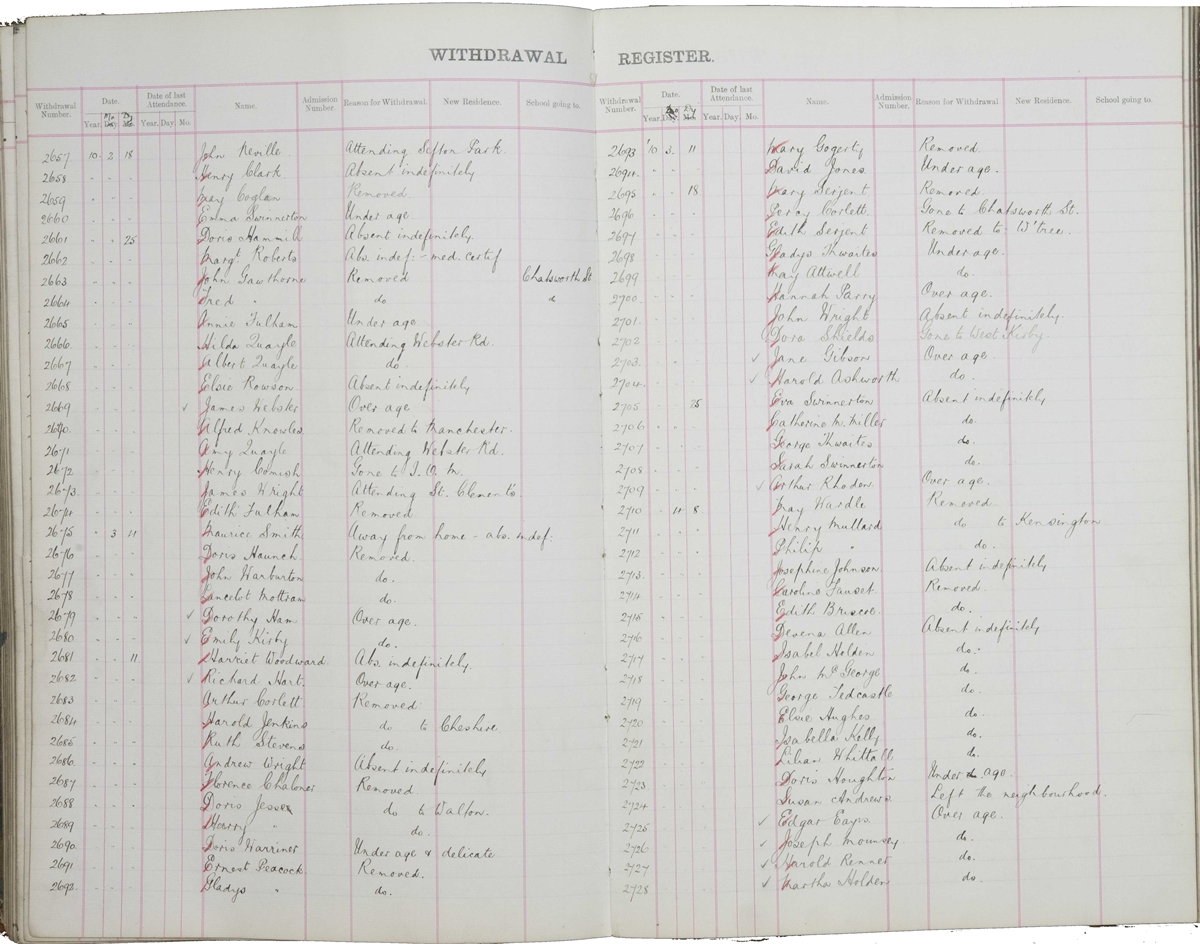 WITHDRAWAL REGISTER.
Withdrawal Number. Date. Year. Day. Mo. Date of last Attendance. Year. Day. Mo. Name. Admission Number. Reason for Withdrawal. New Residence. School going to.
2657 10 2 18 John Neville Attending Sefton Park.
2658 - - - Henry Clark Absent indefinitely
2659 - - - May Coglan Removed
2660 - - - Emma Swinnerton Under age
2661 - - 25 Doris Hammill Absent indefinitely
2662 - - - Margt Roberts Abs. indef: - med. certif
2663 - - - John Gawthorne Removed Chatsworth St.
2664 - - - Fred " do
2665 - - - Annie Fulham Under age
2666 - - - Hilda Quayle Attending Webster Rd.
2667 - - - Albert Quayle do.
2668 - - - Elsie Rowson Absent indefinitely
2669 - - - ✓ James Webster Over age
2670 - - - Alfred Knowles Removed to Manchester.
2671 - - - Amy Quayle Attending Webster Rd.
2672 - - - Henry Cornish Gone to I.O.M.
2673 - - - James Wright Attending St. Clements.
2674 - - - Edith Fulham Removed
2675 - 3 4 Maurice Smith Away from home - abs. indef:
2676 - - - Doris Haunch Removed.
2677 - - - John Warburton do.
2678 - - - Lancelot Mottram do.
2679 - - - ✓ Dorothy Ham Over age.
2680 - - - ✓ Emily Kirby do.
2681 - - 11 Harriet Woodward Abs. indefinitely.
2682 - - - ✓ Richard Hart. Over age.
2683 - - - Arthur Corlett Removed
2684 - - - Harold Jenkins do to Cheshire.
2685 - - - Ruth Stevens do.
2686 - - - Andrew Wright Absent indefinitely
2687 - - - Florence Chaloner Removed
2688 - - - Doris Jesser do to Walton.
2689 - - - Henry " do.
2690 - - - Doris Warriner Under age & delicate
2691 - - - Ernest Peacock Removed.
2692 - - - Gladys " do.
Withdrawal Number. Date. Year. Day. Mo. Date of last Attendance. Year. Day. Mo. Name. Admission Number. Reason for Withdrawal. New Residence. School going to.
2693 10 3 11 Mary Gogerty Removed
2694 - - - David Jones Under age.
2695 - - 18 Mary Serjent Removed
2696 - - - Percy Corlett. Gone to Chatsworth St.
2697 - - - Edith Serjent Removed to W'tree.
2698 - - - Gladys Thwaites Under age.
2699 - - - May Attwell do.
2700 - - - Hannah Parry Over age.
2701 - - - John Wright Absent indefinitely.
2702 - - - Dora Shields Gone to West Kirby.
2703 - - - ✓ Jane Gibson Over age.
2704 - - - ✓ Harold Ashworth do.
2705 - - 25 Eva Swinnerton Absent indefinitely
2706 - - - Catherine M. Miller do.
2707 - - - George Thwaites do.
2708 - - - Sarah Swinnerton do.
2709 - - - ✓ Arthur Rhoden Over age.
2710 - 4 8 May Wardle Removed
2711 - - - Henry Mullard do to Kensington
2712 - - - Philip " do.
2713 - - - Josephine Johnson Absent indefinitely
2714 - - - Caroline Fauset Removed.
2715 - - - Edith Briscoe. do.
2716 - - - Devena Allen Absent indefinitely
2717 - - - Isabel Holden do.
2718 - - - John McGeorge do.
2719 - - - George Tedcastle do.
2720 - - - Elsie Hughes do.
2721 - - - Isabella Kelly do.
2722 - - - Lilian Whittall do.
2723 - - - Doris Houghton Under age.
2724 - - - Susan Andrews Left the neighbourhood.
2725 - - - ✓ Edgar Eays Over age.
2726 - - - ✓ Joseph Mounsey do.
2727 - - - ✓ Harold Renner do.
2728 - - - ✓ Martha Holden do